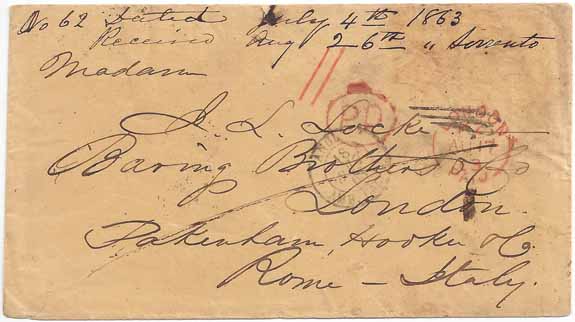 No 62 Dated July 4th 1863
Received Aug 26th " Sorrento
Madam
J. L. Locke
PD
LONDON
AU 17
Baring Brothers & Co
London.
Pakenham, Hooker & Co.
Rome - Italy.